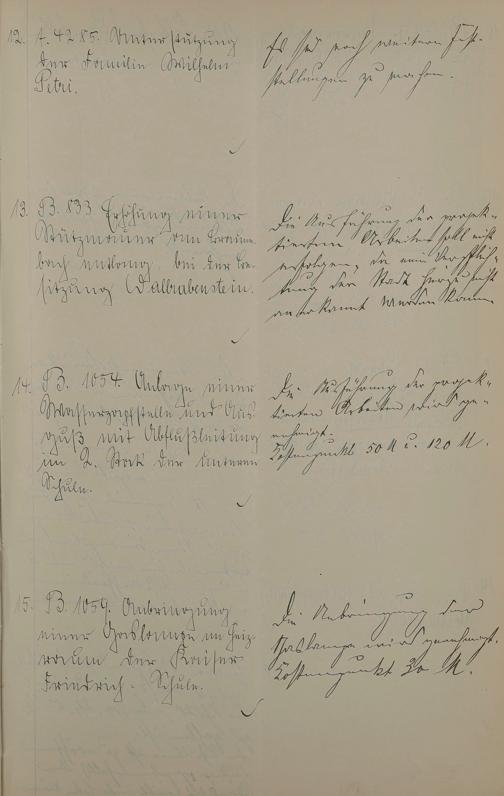 12. A. 4285. Unterstützung
der Familie Wilhelm
Petri.
Es sind noch weitere Fest-
stellungen zu machen.
13. B. 833 Erhöhung einer
Stützmauer am Braum-
bach entlang, bei der Be-
sitzung Dallrabenstein.
Die Ausführung der projek-
tierten Arbeiten soll nicht
erfolgen, da eine Verpflich-
tung der Stadt hierzu nicht
anerkannt werden kann.
14. B. 1054. Anlage einer
Wasserzapfstelle und Aus-
guß mit Abflußleitung
im 2. Stock der Unteren
Schule.
Die Ausführung der projek-
tierten Arbeiten wird ge-
nehmigt.
Kostenpunkt 50 M u. 120 M.
15. B. 1059. Anbringung
einer Gaslampe im Heiz-
raum der Kaiser
Friedrich-Schule.
Die Anbringung der
Gaslampe wird genehmigt.
Kostenpunkt 30 M.